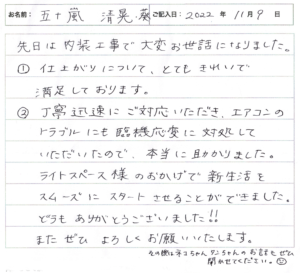 お名前: 五十嵐 清晃・葵 ご記入日: 2022年11月9日
先日は内装工事で大変お世話になりました。
① 仕上がりについて、とてもきれいで
満足しております。
② 丁寧迅速にご対応いただき、エアコンの
トラブルにも臨機応変に対処して
いただいたので、本当に助かりました。
ライトスペース様のおかげで新生活を
スムーズにスタートさせることができました。
どうもありがとうございました!!
またぜひよろしくお願いいたします。
その際はネコちゃん、ワンちゃんのお話も ぜひ
聞かせてください。